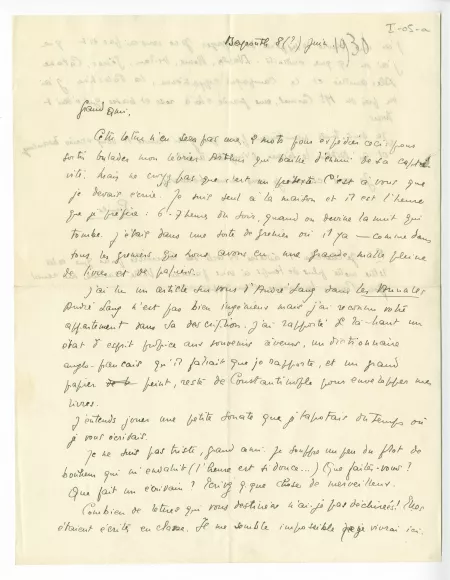 I-05-a
Beyrouth 8(?) Juin
Grand ami,
Cette lettre n'en sera pas une, 2 mots pour expédier ceci, puis
sortir balader mon lévrier qui baille d'ennui de sa capti-
vité. Mais ne croyez pas que c'est un prétexte. C'est à vous que
je devais écrire. Je suis seul à la maison et il est l'heure
que je préfère : 6-7 heures du soir, quand on devine la nuit qui
tombe. J'étais dans une sorte de grenier où il y a — comme dans
tous les greniers que nous avons eu — une grande malle pleine
de livres et de papiers.
J'ai lu un article sur vous d'André Lang dans les Annales
André Lang n'est pas bien ingénieux mais j'ai reconnu votre
appartement dans sa description. J'ai rapporté de là-haut un
état d'esprit propice aux souvenirs à venir, un dictionnaire
anglo-français qu'il fallait que je rapporte, et un grand
papier peint, reste de Constantinople pour envelopper mes
livres.
J'entends jouer une petite sonate que je tapotais du temps où
je vous écrivais.
Je ne suis pas triste, grand ami. Je souffre un peu du flot de
bonheur qui m'envahit (l'heure est si douce...) Que faites-vous ?
Que fait un écrivain ? Ecrivez q.que chose de merveilleux.
Combien de lettres qui vous destinées n'ai-je pas déchirées ! Elles
étaient écrites en classe. Il me semble impossible que je vivrai ici.